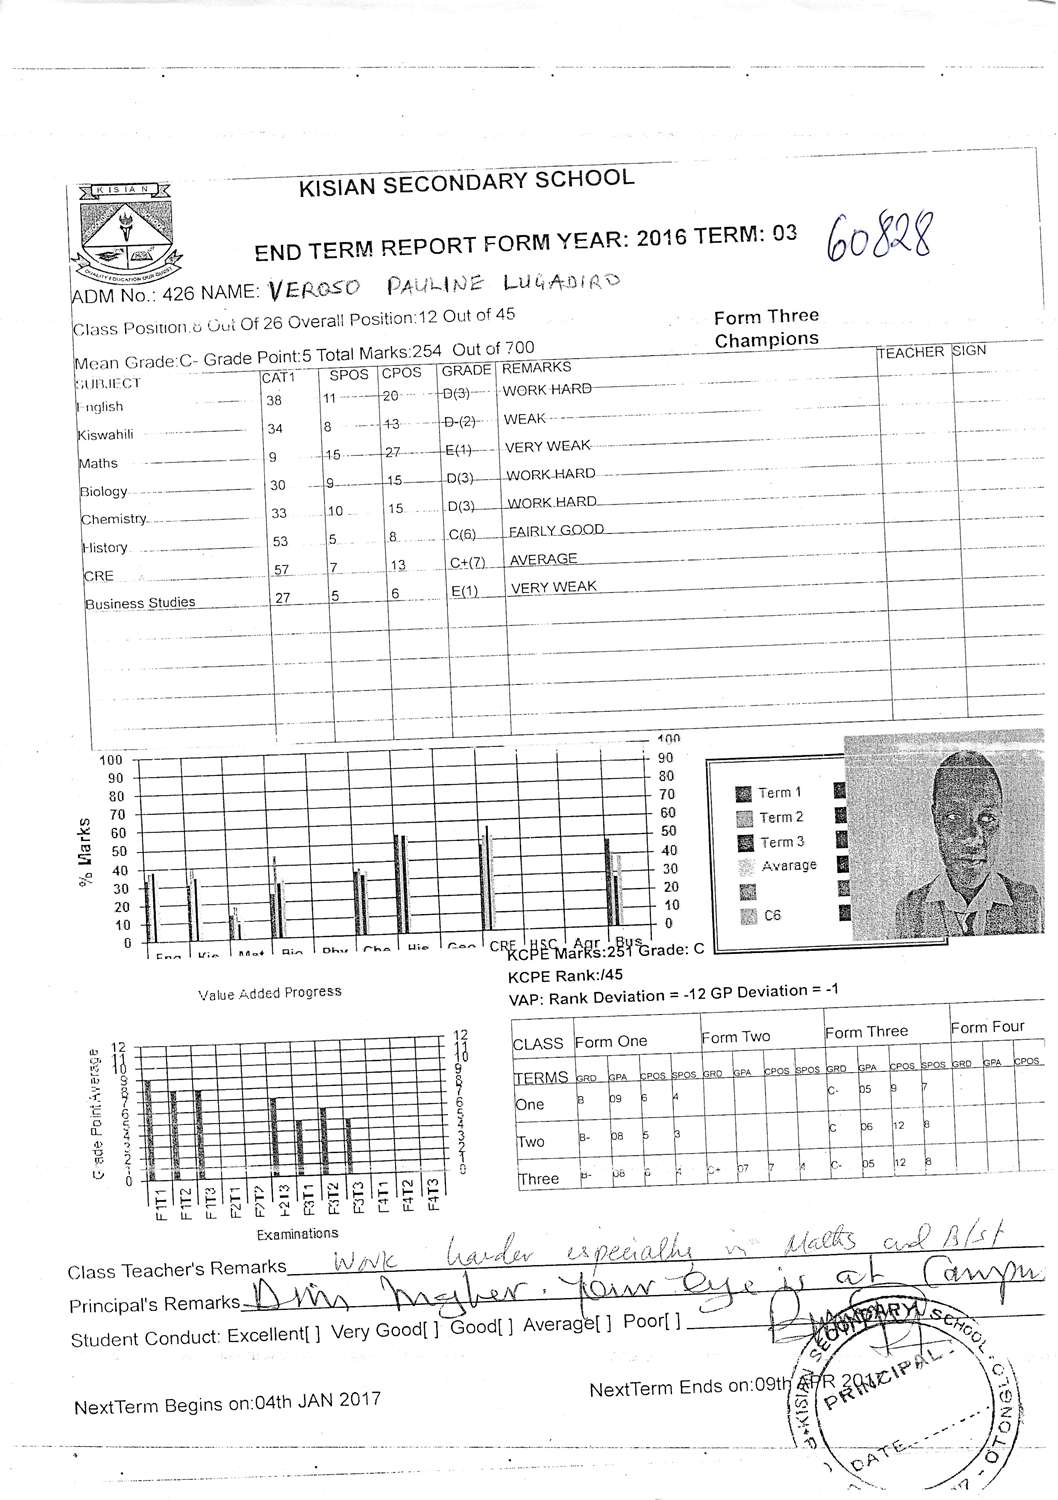 KISIAN
QUALITY EDUCATION OUR QUEST
KISIAN SECONDARY SCHOOL
END TERM REPORT FORM YEAR: 2016 TERM: 03
60828
ADM No.: 426 NAME: VEROSO PAULINE LUGADIRO
Class Position:8 Out Of 26 Overall Position:12 Out of 45
Form Three
Champions
Mean Grade:C- Grade Point:5 Total Marks:254 Out of 700
SUBJECT CAT1 SPOS CPOS GRADE REMARKS TEACHER SIGN
English 38 11 20 D(3) WORK HARD
Kiswahili 34 8 13 D-(2) WEAK
Maths 9 15 27 E(1) VERY WEAK
Biology 30 9 15 D(3) WORK HARD
Chemistry 33 10 15 D(3) WORK HARD
History 53 5 8 C(6) FAIRLY GOOD
CRE 57 7 13 C+(7) AVERAGE
Business Studies 27 5 6 E(1) VERY WEAK
% Marks
100 100
90 90
80 80
70 70
60 60
50 50
40 40
30 30
20 20
10 10
0 0
Eng Kis Mat Bio Phy Che His Geo CRE HSC Agr Bus
Term 1
Term 2
Term 3
Avarage
C6
KCPE Marks:251 Grade: C
KCPE Rank:/45
VAP: Rank Deviation = -12 GP Deviation = -1
Value Added Progress
Grade Point Average
12 12
11 11
10 10
9 9
8 8
7 7
6 6
5 5
4 4
3 3
2 2
1 1
0 0
F1T1 F1T2 F1T3 F2T1 F2T2 F2T3 F3T1 F3T2 F3T3 F4T1 F4T2 F4T3
Examinations
CLASS Form One Form Two Form Three Form Four
TERMS GRD GPA CPOS SPOS GRD GPA CPOS SPOS GRD GPA CPOS SPOS GRD GPA CPOS
One B 09 6 4 C- 05 9 7
Two B- 08 5 3 C 06 12 8
Three B- 08 6 4 C+ 07 7 4 C- 05 12 8
Class Teacher's Remarks Work harder especially in Maths and B/st
Principal's Remarks Aim higher. Your eye is at Campu
Student Conduct: Excellent[ ] Very Good[ ] Good[ ] Average[ ] Poor[ ]
NextTerm Begins on:04th JAN 2017
NextTerm Ends on:09th APR 2017
KISIAN SECONDARY SCHOOL
PRINCIPAL
DATE
OTONGLO